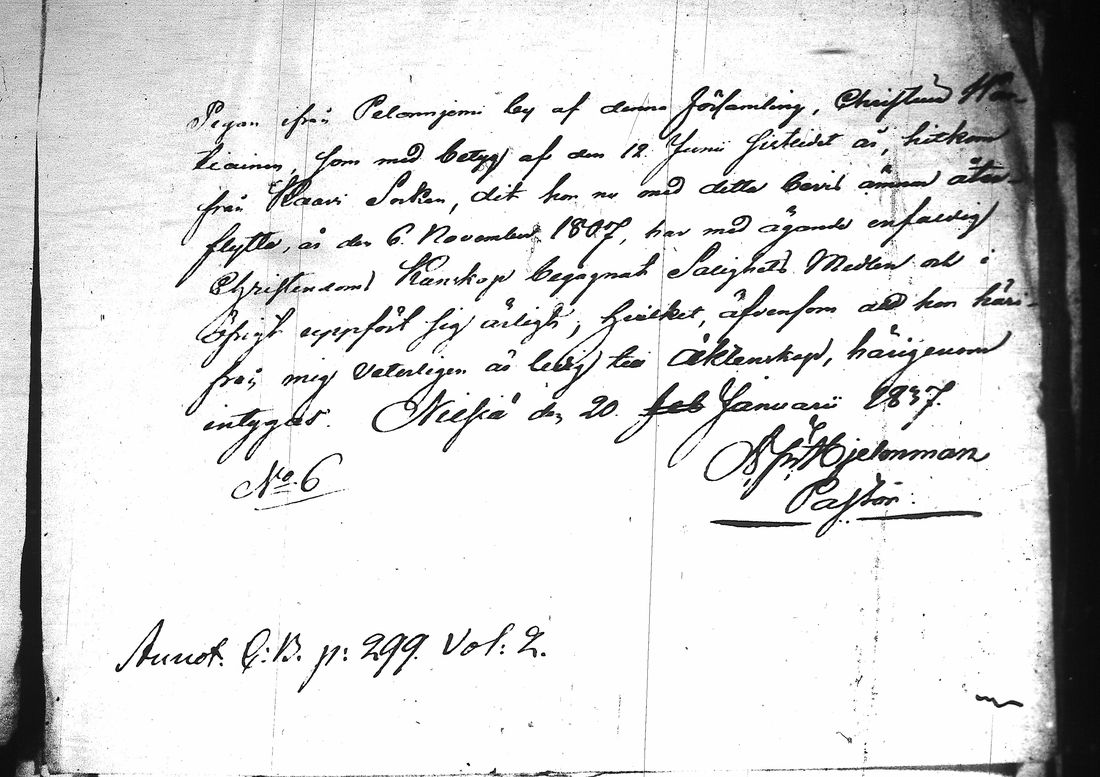 Pigan ifrån Pelonnjemi by af denna Församling, Christina Har-
tiainen, som med betyg af den 12. Junii sistledet år, hitkom
från Kaavi Socken, dit hon nu med detta bevis ämnar åter-
flytta, är den 6. November 1807, har med ägande enfaldig
Christendoms Kunskap begagnat Salighets Medlen och i
öfrigt uppfört sig ärligt, hvilket, äfvensom att hon häri-
från mig veterligen är ledig till äktenskap, härigenom
intygas. Nilsiä den 20. Januarii 1837.
Hjelmman
No. 6
Pastor.
Annot. C: B. p: 299. Vol: 2.